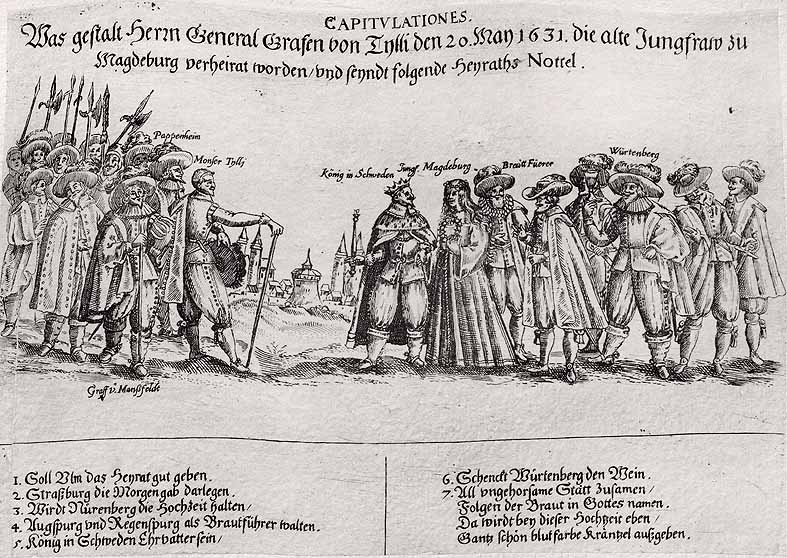 CAPITVLATIONES.
Was gestalt Herrn General Grafen von Tylli den 20. May 1631. die alte Jungfraw zu
Magdeburg verheirat worden/ vnd seyndt folgende Heyraths Nottel.
Pappenheim
Monser Tylly
König in Schweden
Jungf. Magdeburg
Brautt Füerer
Würtenberg
Graff v. Mansfeldt
1. Soll Vlm das Heyrat gut geben.
2. Straßburg die Morgengab darlegen.
3. Wirdt Nürenberg die Hochzeit halten/
4. Augspurg vnd Regenspurg als Brautführer walten.
5. König in Schweden Ehrvatter sein/
6. Schenckt Würtenberg den Wein.
7. All vngehorsame Stätt zusamen/
Folgen der Braut in Gottes namen.
Da wirdt bey dieser Hochzeit eben/
Gantz schön blutfarbe Kräntzel außgeben.